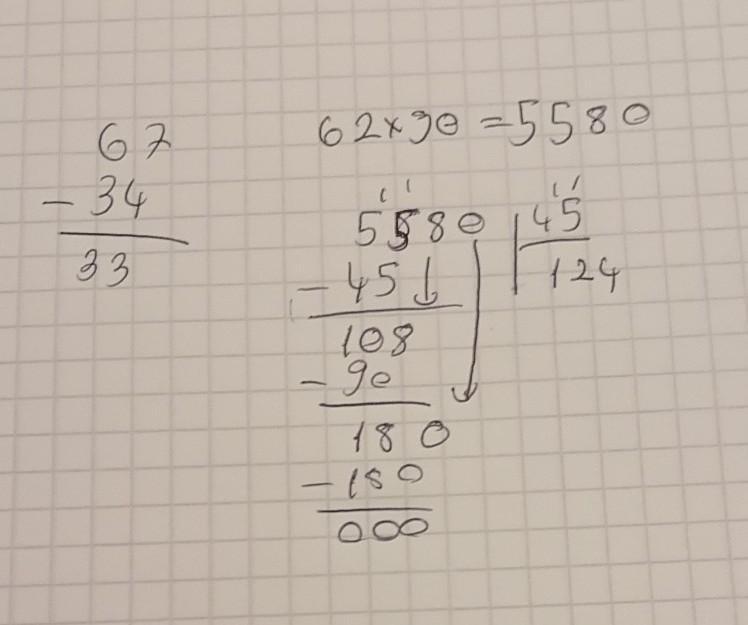 67
- 34
33
62×90=5580
5580 45
- 45 124
108
- 90
180
- 180
000